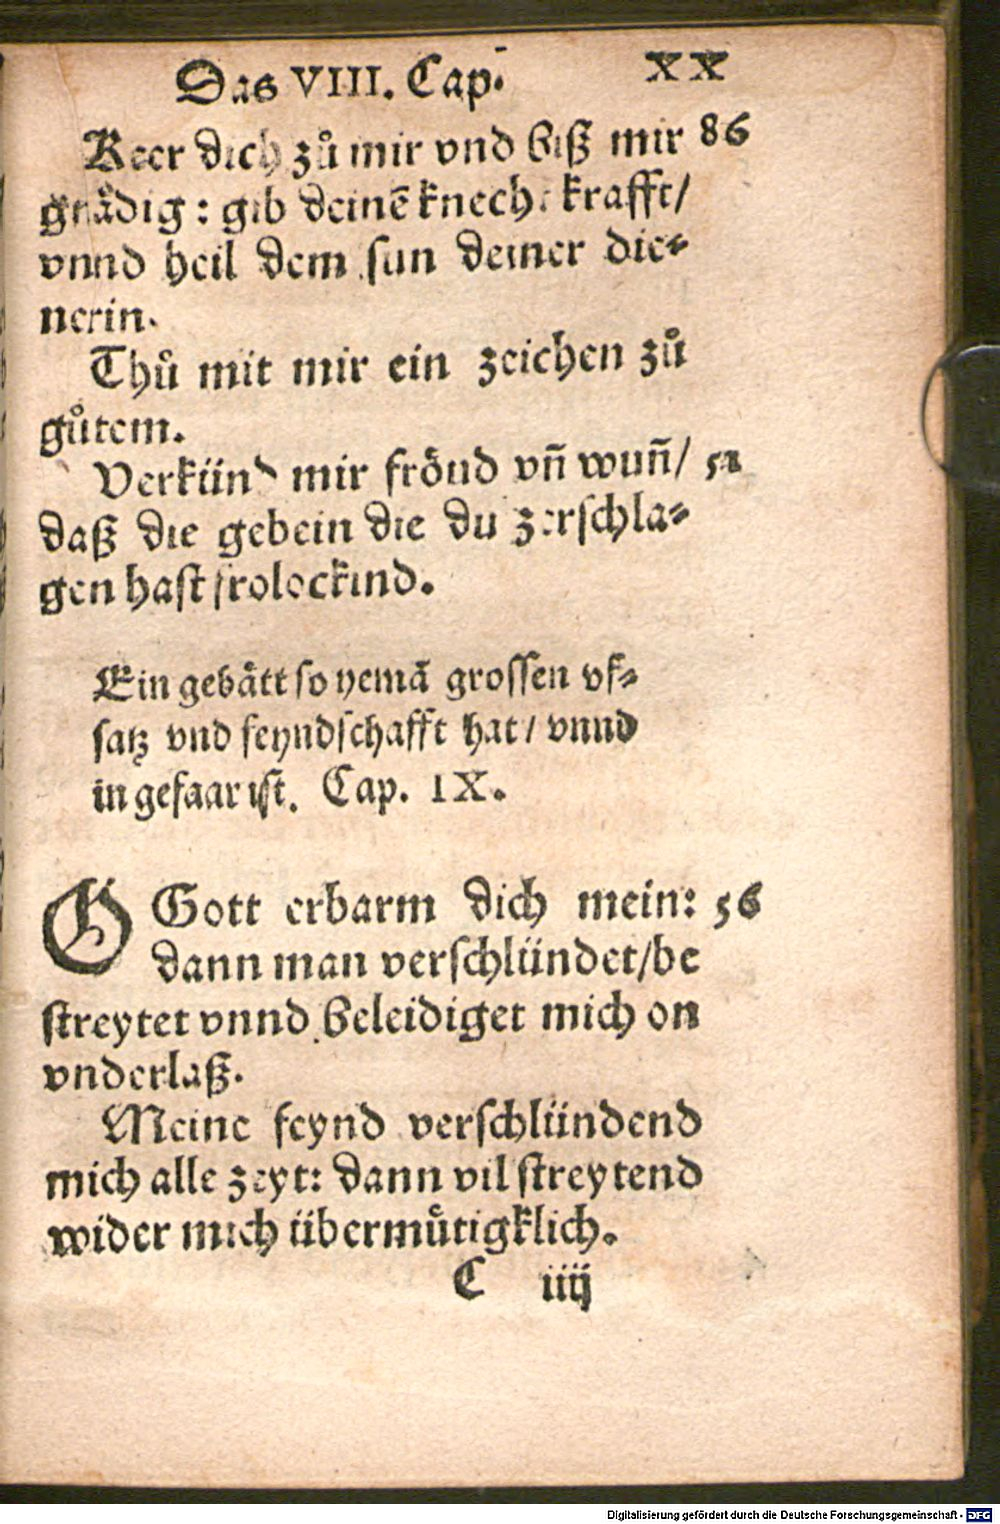 Das VIII. Cap. XX
Keer dich zů mir vnd biß mir 86
gnådig: gib deinē knecht krafft/
vnnd heil dem sun deiner die⸗
nerin.
Thů mit mir ein zeichen zů
gůtem.
Verkünd mir frôud vñ wuñ/ 51
daß die gebein die du zerschla⸗
gen hast frolockind.
Ein gebått so yemā grossen vf⸗
satz vnd feyndschafft hat/ vnnd
in gefaar ist. Cap. IX.
O Gott erbarm dich mein: 56
dann man verschlündet/be
streytet vnnd beleidiget mich on
vnderlaß.
Meine feynd verschlündend
mich alle zeyt: dann vil streytend
wider mich übermůtigklich.
C iiij
Digitalisierung gefördert durch die Deutsche Forschungsgemeinschaft - DFG